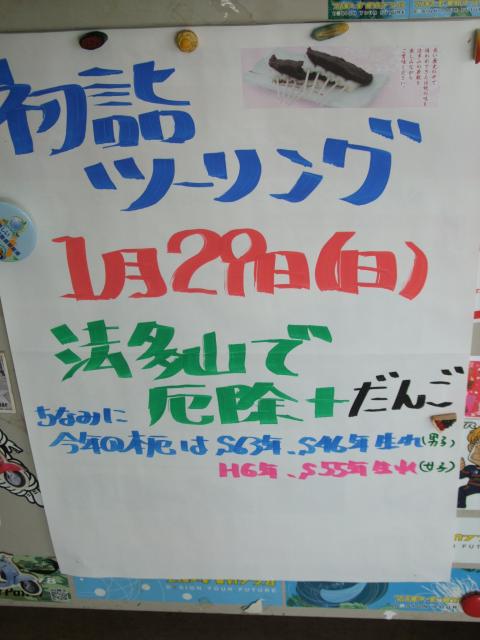 初詣
ツーリング
1月29日(日)
法多山で
厄除+だんご
ちなみに
今年の本厄は S63年、S46年生れ(男子)
H6年、S55年生れ(女子)